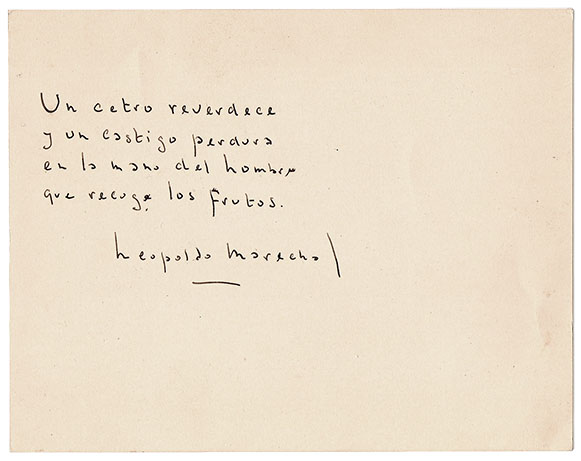 Un cetro reverdece
y un castigo perdura
en la mano del hombre
que recoge los frutos.
Leopoldo Marechal